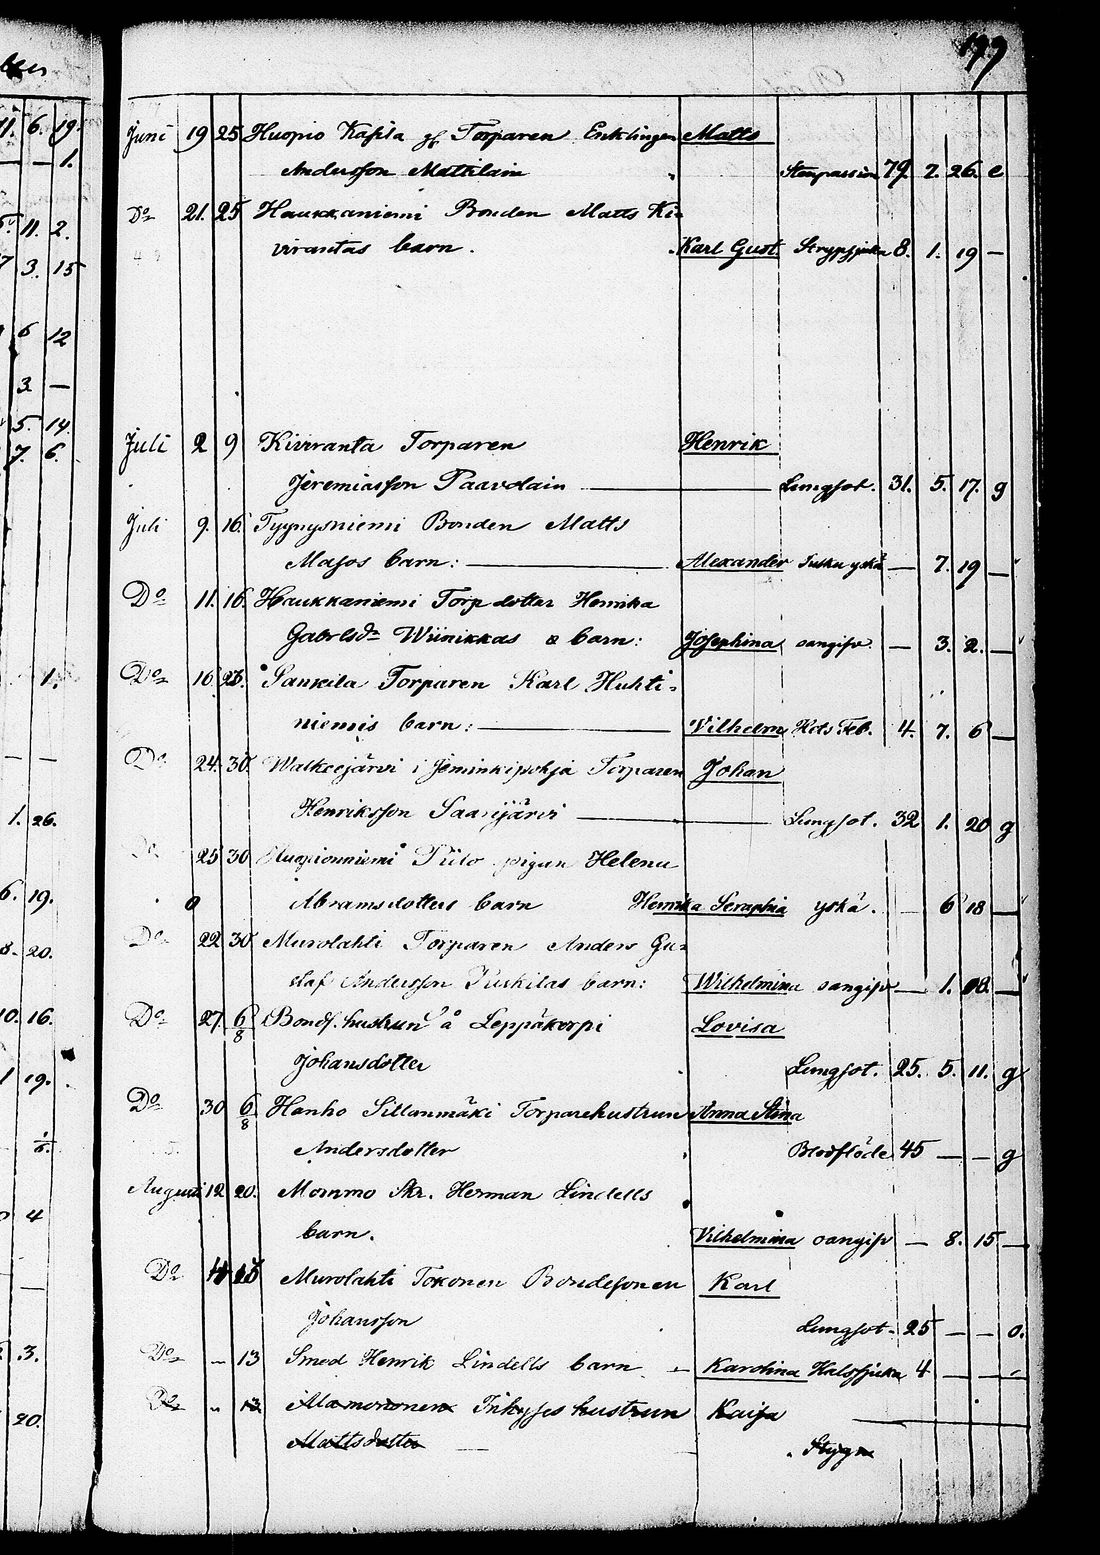 199
Juni 19 25 Huopio Kasila gf Torparen Enklingen Matts
Andersson Matilain Stenpassion 79 7. 26. e
Do 21. 25 Haukkaniemi Bonden Matts Ki-
virantas barn. Karl Gust. Strypsjuka 8. 1. 19 —
Juli 2 9 Kiviranta Torparen Henrik
Jeremiasson Paavolain Lungsot. 31. 5. 17. g
Juli 9. 16. Tyynysniemi Bonden Matts
Majos barn: Alexander yskä — 7. 19 —
Do 11. 16. Haukkaniemi Torp dotter Henrika
Gabrlsdr Wiinikkas o barn: Josephina oangifv. — 3. 2. —
Do 16. Sankila Torparen Karl Huhti-
niemis barn: Vilhelm Hets Feb. 4. 7. 6 —
Do 24. 30. Walkeejärvi i Jeminkipohja Torparen Johan
Henriksson Saarijärvi Lungsot. 32 1. 20 g
Do 25 30 Huopionniemi Piilo pigan Helena
Abramsdotters barn Henrika Seraphia yskä. — 6 18 —
Do 22 30 Murolahti Torparen Anders Gu-
staf Andersson Puskilas barn: Wilhelmina oangifv — 1. 18. —
Do 27. 6/8 Bondf. hustrun å Leppäkorpi Lovisa
Johansdotter Lungsot. 25. 5. 11. g
Do 30 6/8 Hanho Sillanmäki Torparehustrun Anna Stina
Andersdotter Blodflöde 45 — — g
Augusti 12 20. Mommo Skr. Herman Lindells
barn. Vilhelmina oangifv — 8. 15 —
Do Murolahti Tokonen Bondesonen Karl
Johansson Lungsot. 25 — — o.
Do " 13 Smed Henrik Lindells barn Karolina Halssjuka 4 — —
Do " 13. Mamononen hustrun Kaisa
Mattsdotter Stygn